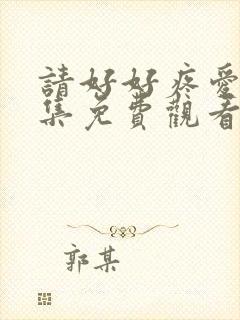 請好好疼愛
集免費觀看
郭某